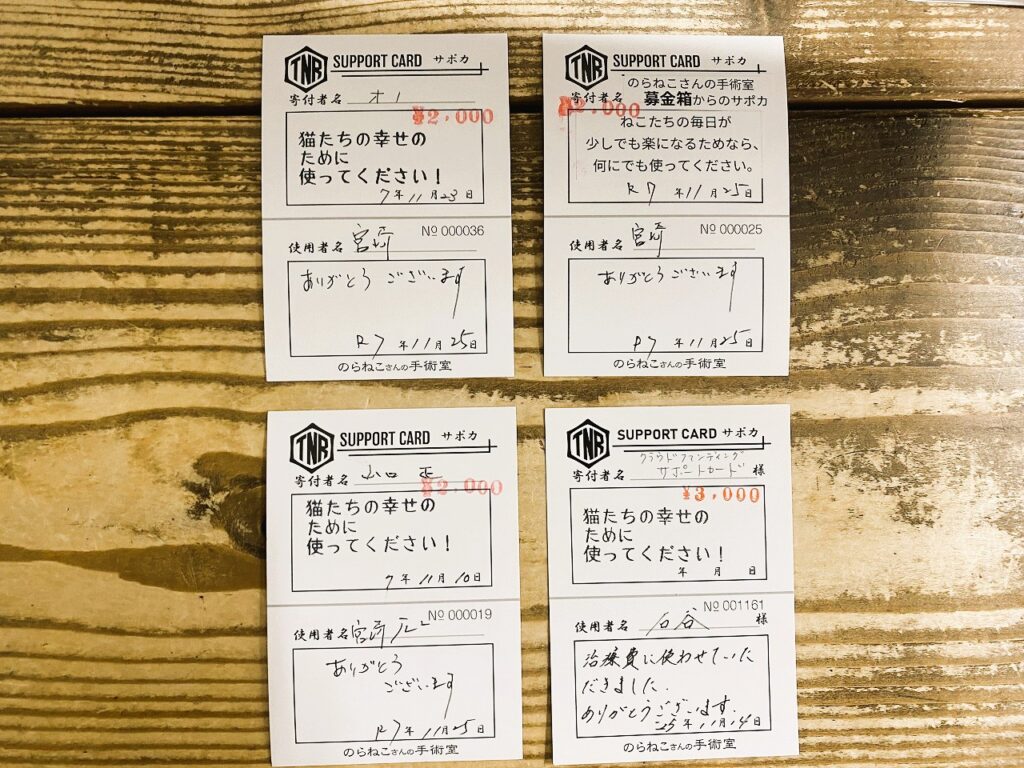 TNR SUPPORT CARD サポカ
寄付者名 オノ
¥2,000
猫たちの幸せの
ために
使ってください！
7年11月23日
使用者名 宮崎 No 000036
ありがとうございます
R7年11月25日
のらねこさんの手術室
TNR SUPPORT CARD サポカ
のらねこさんの手術室
寄付者名 募金箱からのサポカ
¥2,000
ねこたちの毎日が
少しでも楽になるためなら、
何にでも使ってください。
R7年11月25日
使用者名 宮崎 No 000025
ありがとうございます
R7年11月25日
のらねこさんの手術室
TNR SUPPORT CARD サポカ
寄付者名 山口 正
¥2,000
猫たちの幸せの
ために
使ってください！
7年11月10日
使用者名 宮崎 No 000019
ありがとう
ございます
R7年11月25日
のらねこさんの手術室
TNR SUPPORT CARD サポカ
クラウドファンディング
寄付者名 サポートカード 様
¥3,000
猫たちの幸せの
ために
使ってください！
年 月 日
No 001161
使用者名 石谷 様
治療費に使わせていた
だきました.
ありがとうございます.
25年11月14日
のらねこさんの手術室